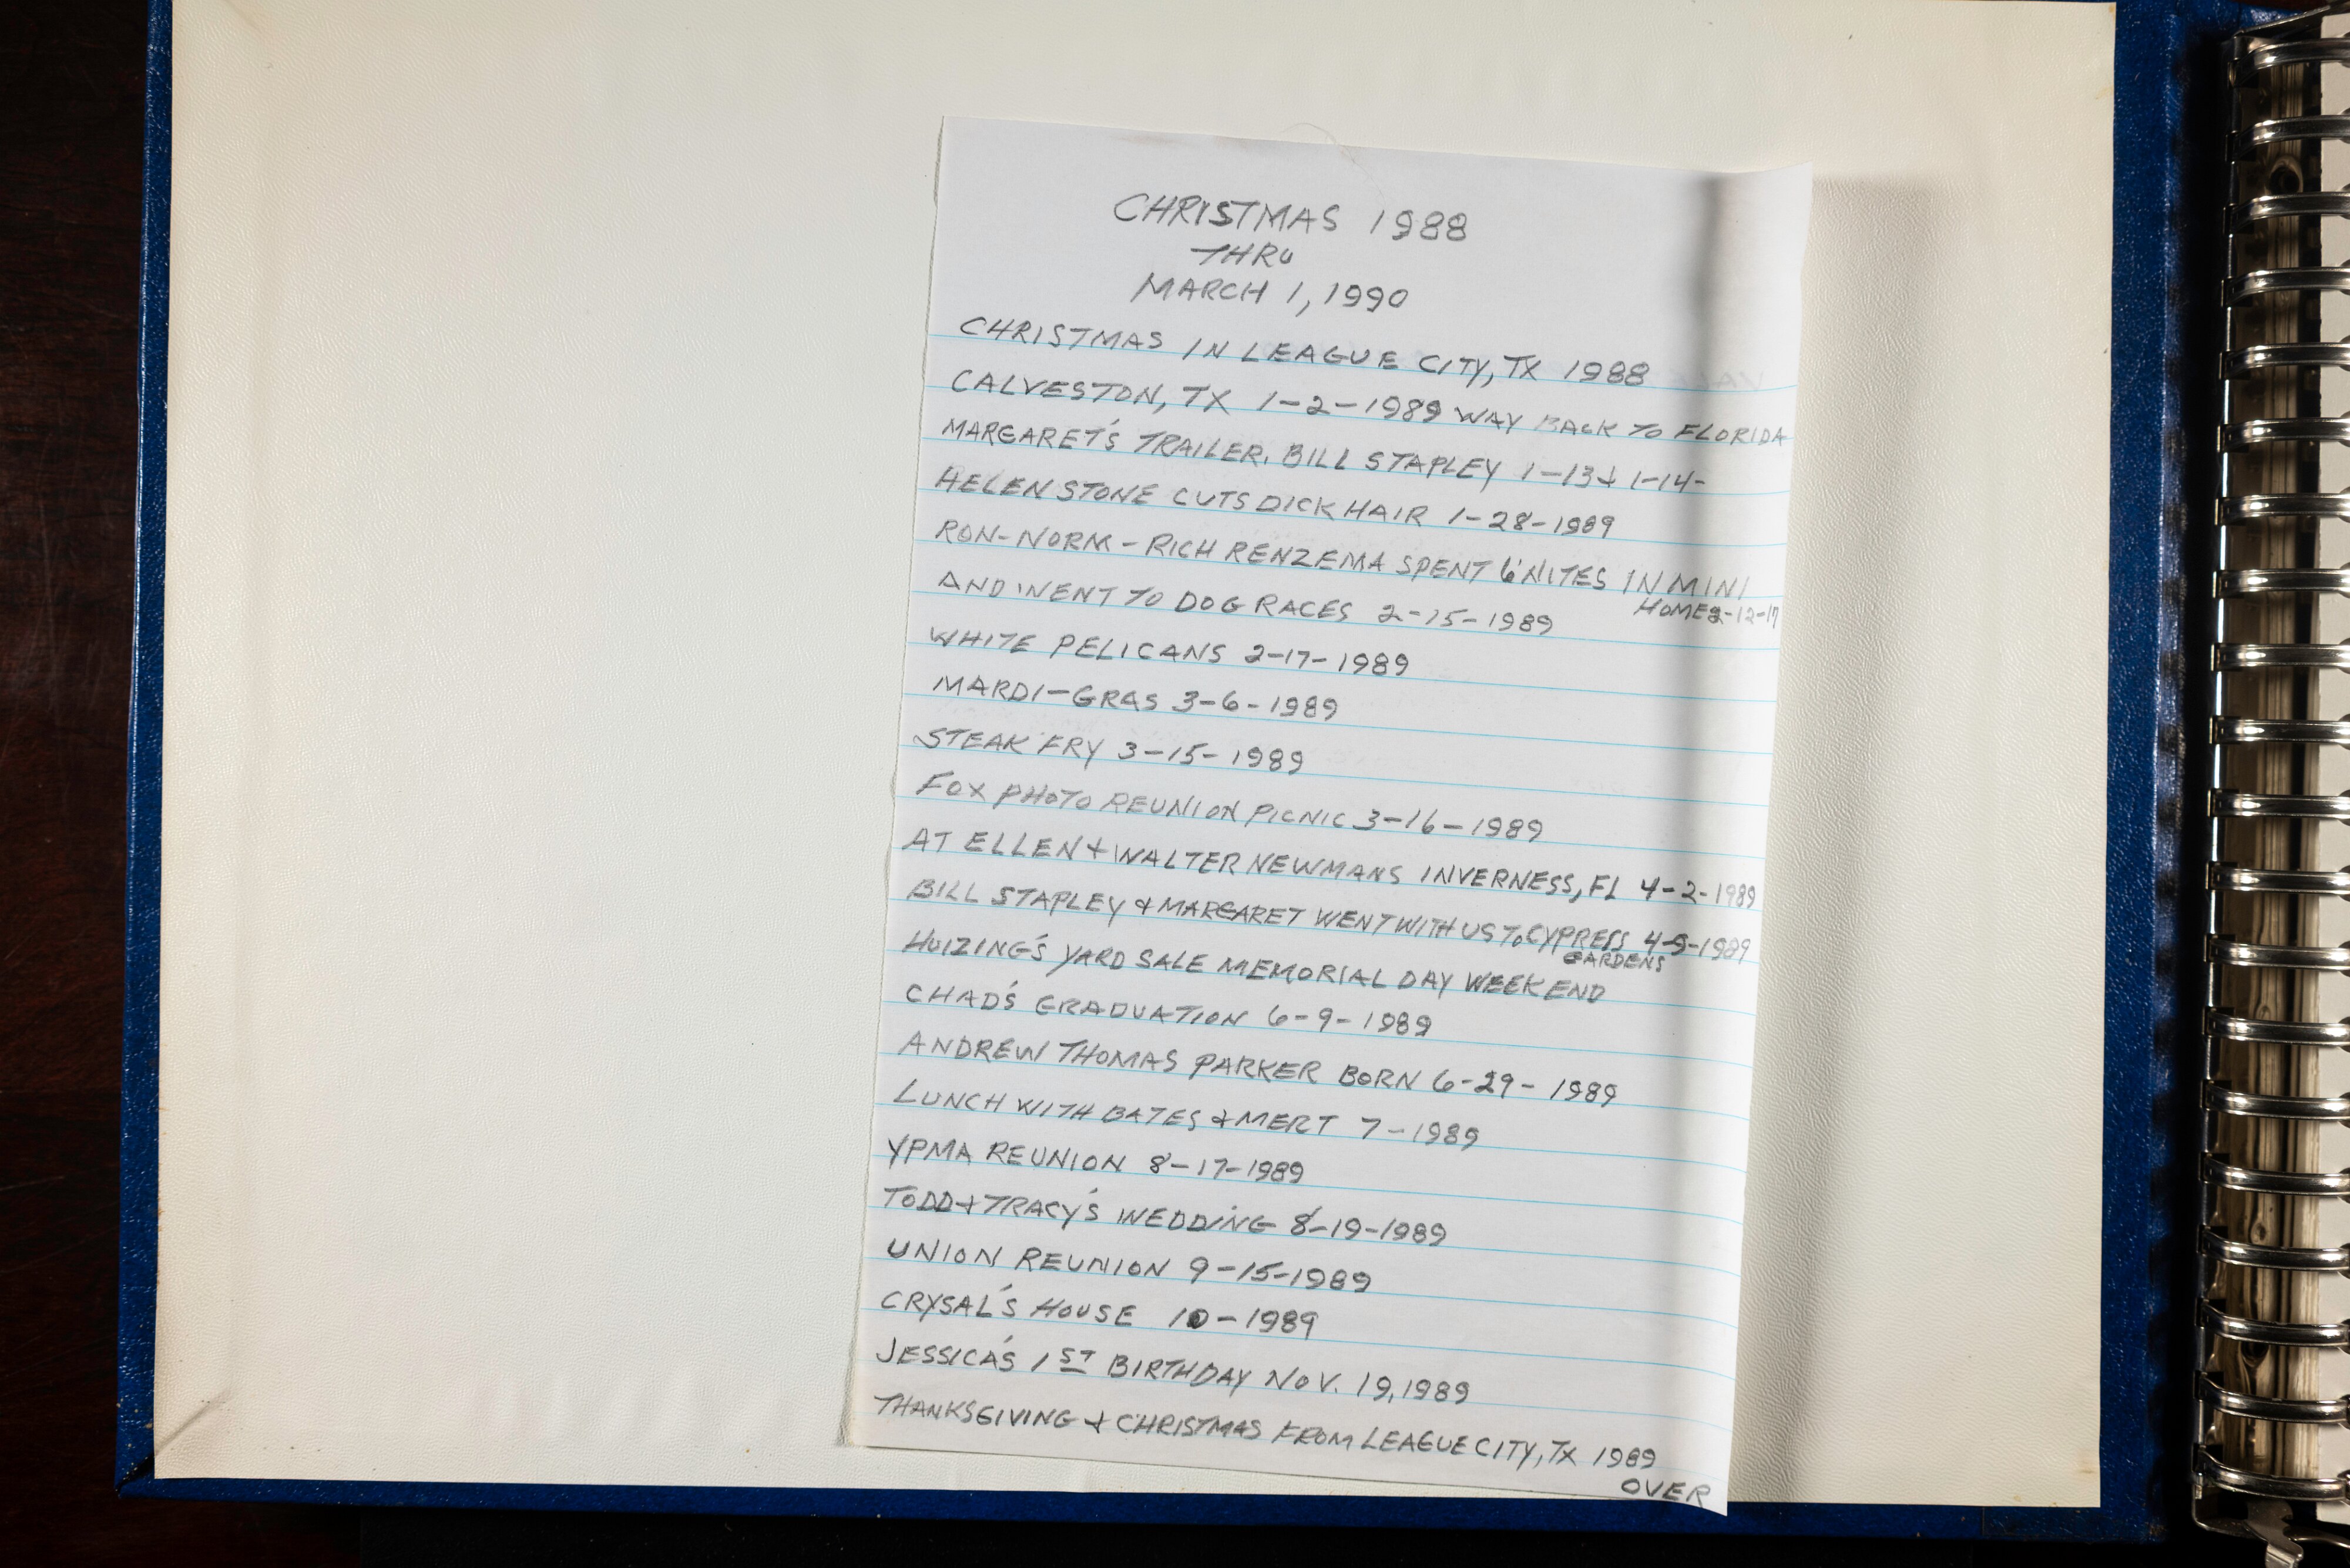 CHRISTMAS 1988
THRU
MARCH 1, 1990
CHRISTMAS IN LEAGUE CITY, TX 1988
CALVESTON, TX 1-2-1989 WAY BACK TO FLORIDA
MARGARET'S TRAILER. BILL STAPLEY 1-13 + 1-14-
HELEN STONE CUTS DICK HAIR 1-28-1989
RON-NORM-RICH RENZEMA SPENT 6 NITES IN MINI
HOME 2-12-17
AND WENT TO DOG RACES 2-15-1989
WHITE PELICANS 2-17-1989
MARDI-GRAS 3-6-1989
STEAK FRY 3-15-1989
FOX PHOTO REUNION PICNIC 3-16-1989
AT ELLEN + WALTER NEWMANS INVERNESS, FL 4-2-1989
BILL STAPLEY & MARGARET WENT WITH US TO CYPRESS 4-9-1989
GARDENS
HUIZING'S YARD SALE MEMORIAL DAY WEEK END
CHAD'S GRADUATION 6-9-1989
ANDREW THOMAS PARKER BORN 6-29-1989
LUNCH WITH BATES & MERT 7-1989
YPMA REUNION 8-17-1989
TODD + TRACY'S WEDDING 8-19-1989
UNION REUNION 9-15-1989
CRYSAL'S HOUSE 10-1989
JESSICA'S 1ST BIRTHDAY NOV. 19, 1989
THANKSGIVING + CHRISTMAS FROM LEAGUE CITY, TX 1989
OVER